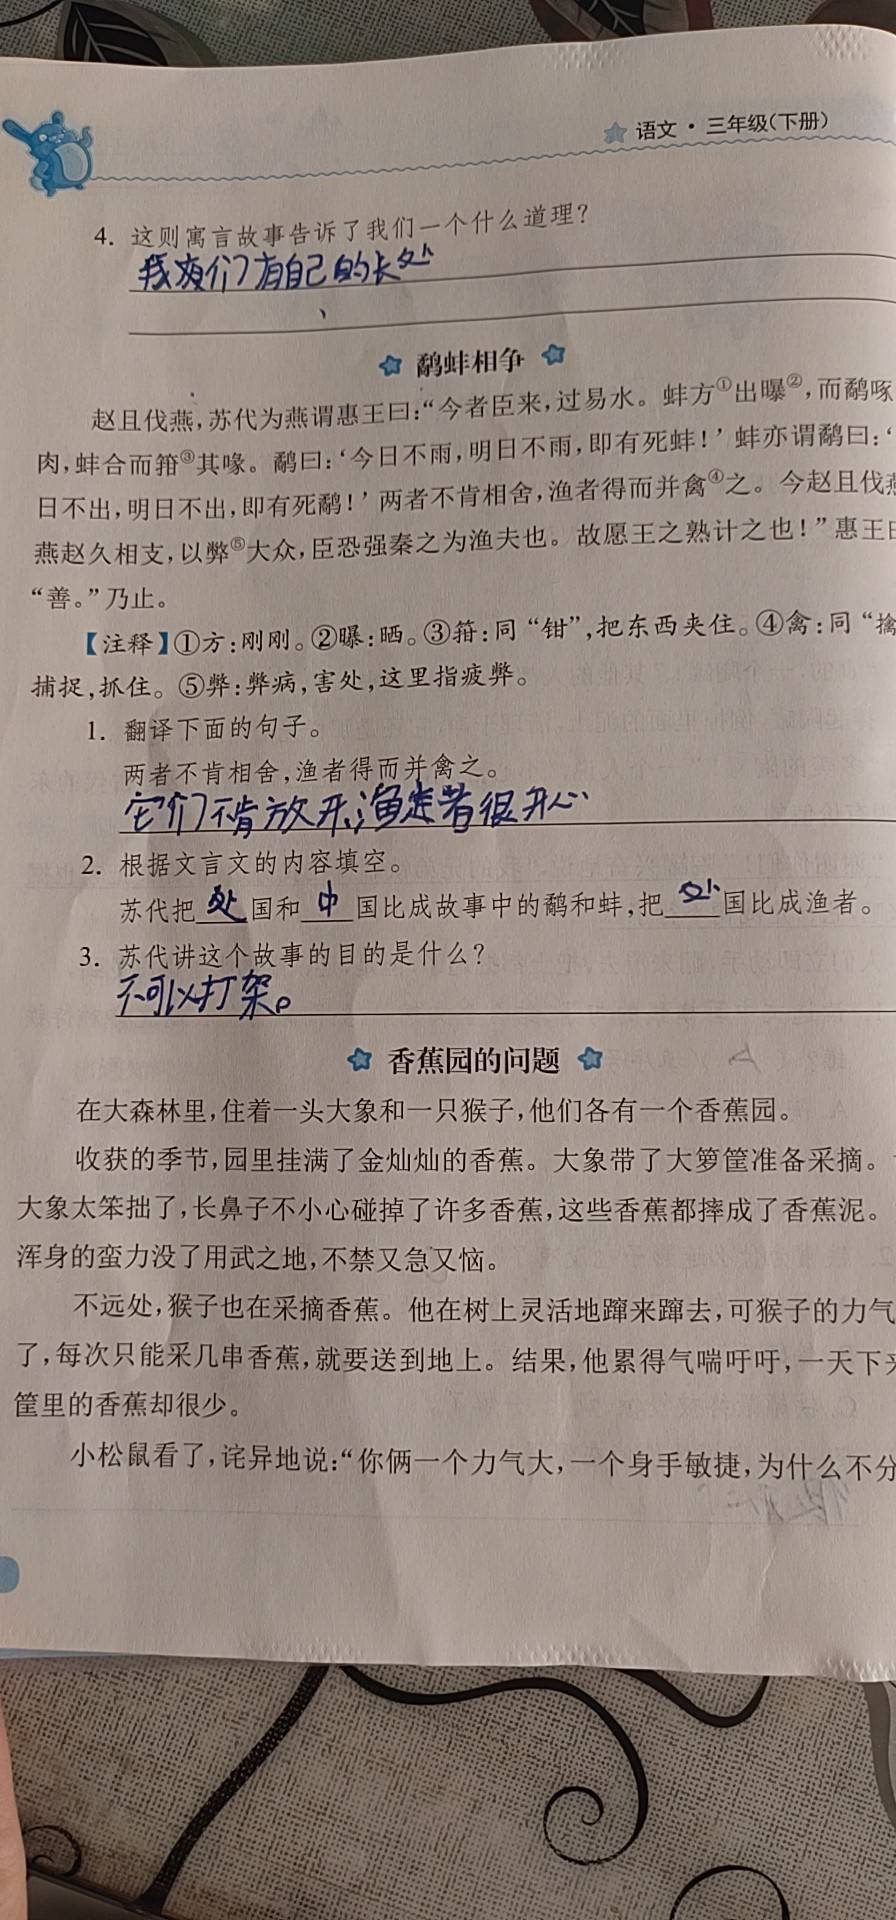 语文·三年级(下册)
4. 这则寓言故事告诉了我们一个什么道理?
我们有自己的长处
鹬蚌相争
赵且伐燕,苏代为燕谓惠王曰:“今者臣来,过易水。蚌方①出曝②,而鹬啄
肉,蚌合而箝③其喙。鹬曰:‘今日不雨,明日不雨,即有死蚌!’蚌亦谓鹬曰:‘
日不出,明日不出,即有死鹬!’两者不肯相舍,渔者得而并禽④之。今赵且伐
燕赵久相支,以弊⑤大众,臣恐强秦之为渔夫也。故愿王之熟计之也!”惠王
“善。”乃止。
【注释】①方:刚刚。②曝:晒。③箝:同“钳”,把东西夹住。④禽:同“擒
捕捉,抓住。⑤弊:弊病,害处,这里指疲弊。
1. 翻译下面的句子。
两者不肯相舍,渔者得而并禽之。
它们不肯放开,渔者很开心
2. 根据文言文的内容填空。
苏代把处国和中国比成故事中的鹬和蚌,把外国比成渔者。
3. 苏代讲这个故事的目的是什么?
不可以打架。
香蕉园的问题
在大森林里,住着一头大象和一只猴子,他们各有一个香蕉园。
收获的季节,园里挂满了金灿灿的香蕉。大象带了大箩筐准备采摘。
大象太笨拙了,长鼻子不小心碰掉了许多香蕉,这些香蕉都摔成了香蕉泥。
浑身的蛮力没了用武之地,不禁又急又恼。
不远处,猴子也在采摘香蕉。他在树上灵活地蹿来蹿去,可猴子的力气
了,每次只能采几串香蕉,就要送到地上。结果,他累得气喘吁吁,一天下
筐里的香蕉却很少。
小松鼠看了,诧异地说:“你俩一个力气大,一个身手敏捷,为什么不分